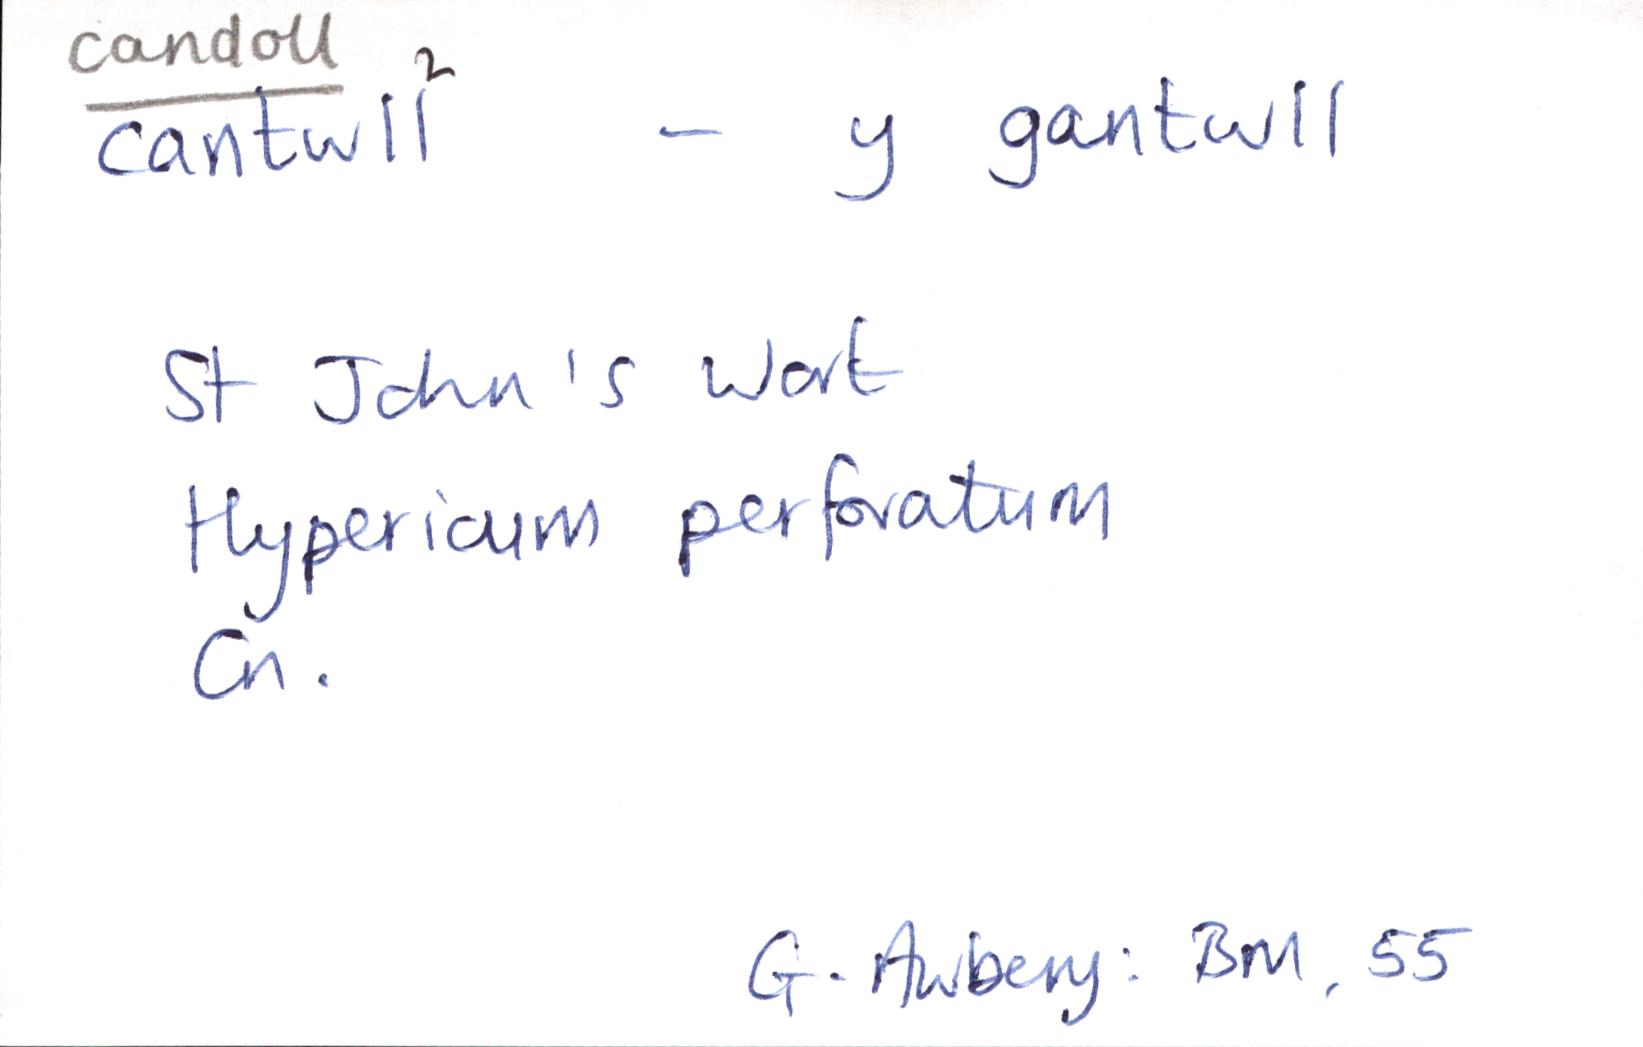 candoll
cantwll² – y gantwll
St John's Wort
Hypericum perforatum
Cn.
G. Awbery: BM, 55